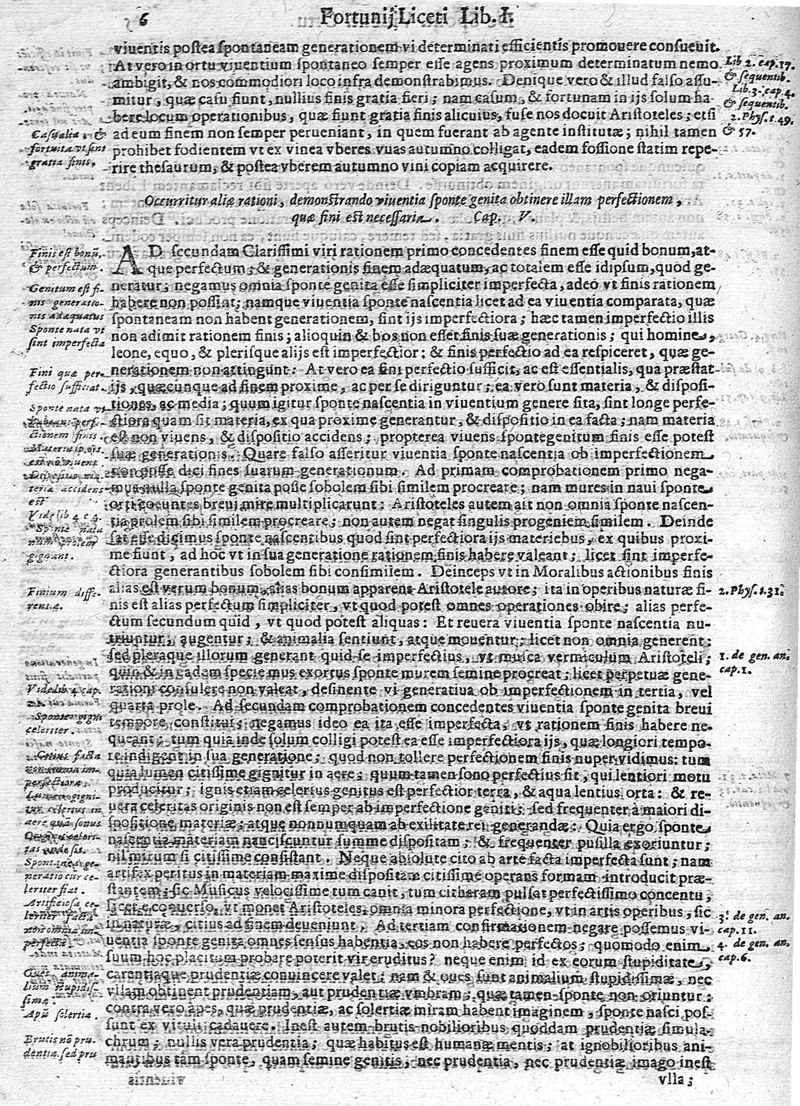 6
Fortunij Liceti Lib. I.
viuentis postea spontaneam generationem vi determinati efficientis promouere consueuit.
At vero in ortu viuentium spontaneo semper esse agens proximum determinatum nemo
ambigit, & nos commodiori loco infra demonstrabimus. Denique vero & illud falso assu-
mitur, quæ casu fiunt, nullius finis gratia fieri; nam casum, & fortunam in ijs solum ha-
bere locum operationibus, quæ fiunt gratia finis alicuius, fuse nos docuit Aristoteles; etsi
ad eum finem non semper perueniant, in quem fuerant ab agente institutæ; nihil tamen
prohibet fodientem vt ex vinea vberes vuas autumno colligat, eadem fossione statim repe-
rire thesaurum, & postea vberem autumno vini copiam acquirere.
Lib 2. cap. 17.
& sequentib.
Lib. 3. cap. 4.
& sequentib.
2. Phys. t. 49.
& 57.
Casualia, &
fortuita vt sint
gratia finis.
Occurritur aliæ rationi, demonstrando viuentia sponte genita obtinere illam perfectionem,
quæ fini est necessaria. Cap. V.
AD secundam Clarissimi viri rationem primo concedentes finem esse quid bonum, at-
que perfectum; & generationis finem adæquatum, ac totalem esse idipsum, quod ge-
neratur; negamus omnia sponte genita esse simpliciter imperfecta, adeo vt finis rationem
habere non possint; namque viuentia sponte nascentia licet ad ea viuentia comparata, quæ
spontaneam non habent generationem, sint ijs imperfectiora; hæc tamen imperfectio illis
non adimit rationem finis; alioquin & bos non esset finis suæ generationis; qui homine,
leone, equo, & plerisque alijs est imperfectior: & finis perfectio ad ea respiceret, quæ ge-
nerationem non attingunt: At vero ea fini perfectio sufficit, ac est essentialis, qua præstat
ijs, quæcunque ad finem proxime, ac per se diriguntur; ea vero sunt materia, & disposi-
tiones, ac media; quum igitur sponte nascentia in viuentium genere sita, sint longe perfe-
ctiora quam sit materia, ex qua proxime generantur, & dispositio in ea facta; nam materia
est non viuens, & dispositio accidens; propterea viuens spontegenitum finis esse potest
suæ generationis. Quare falso asseritur viuentia sponte nascentia ob imperfectionem
non posse dici fines suarum generationum. Ad primam comprobationem primo nega-
mus nulla sponte genita posse sobolem sibi similem procreare; nam mures in naui sponte
orti coeuntes breui mire multiplicarunt: Aristoteles autem ait non omnia sponte nascen-
tia prolem sibi similem procreare; non autem negat singulis progeniem similem. Deinde
sat esse dicimus sponte nascentibus quod sint perfectiora ijs materiebus, ex quibus proxi-
me fiunt, ad hoc vt in sua generatione rationem finis habere valeant; licet sint imperfe-
ctiora generantibus sobolem sibi consimilem. Deinceps vt in Moralibus actionibus finis
alias est verum bonum, alias bonum apparens Aristotele autore; ita in operibus naturæ fi-
nis est alias perfectum simpliciter, vt quod potest omnes operationes obire; alias perfe-
ctum secundum quid, vt quod potest aliquas: Et reuera viuentia sponte nascentia nu-
triuntur, augentur; & animalia sentiunt, atque mouentur; licet non omnia generent:
sed pleraque illorum generant quid se imperfectius, vt musca vermiculum Aristoteli;
quin & in eadem specie mus exortus sponte murem semine procreat; licet perpetuæ gene-
rationi consulere non valeat, desinente vi generatiua ob imperfectionem in tertia, vel
quarta prole. Ad secundam comprobationem concedentes viuentia sponte genita breui
tempore constitui; negamus ideo ea ita esse imperfecta, vt rationem finis habere ne-
queant; tum quia inde solum colligi potest ea esse imperfectiora ijs, quæ longiori tempo-
re indigent in sua generatione; quod non tollere perfectionem finis nuper vidimus: tum
quia lumen citissime gignitur in aere; quum tamen sono perfectius sit, qui lentiori motu
producitur; ignis etiam celerius genitus est perfectior terra, & aqua lentius orta: & re-
uera celeritas originis non est semper ab imperfectione geniti; sed frequenter à maiori di-
spositione materiæ; atque nonnumquam ab exilitate rei generandæ: Quia ergo sponte
nascentia materiam nanciscuntur summe dispositam; & frequenter pusilla exoriuntur;
nil mirum si citissime consistant. Neque absolute cito ab arte facta imperfecta sunt; nam
artifex peritus in materiam maxime dispositam citissime operans formam introducit præ-
stantem; sic Musicus velocissime tum canit, tum citharam pulsat perfectissimo concentu;
licet e conuerso, vt monet Aristoteles, omnia minora perfectione, vt in artis operibus, sic
in naturæ, citius ad finem deueniunt. Ad tertiam confirmationem negare possemus vi-
uentia sponte genita omnes sensus habentia, eos non habere perfectos; quomodo enim
suum hoc placitum probare poterit vir eruditus? neque enim id ex eorum stupiditate,
carentiaque prudentiæ conuincere valet; nam & oues sunt animalium stupidissimæ, nec
vllam obtinent prudentiam, aut prudentiæ vmbram; quæ tamen sponte non oriuntur:
contra vero apes, quæ prudentiæ, ac solertiæ miram habent imaginem, sponte nasci pos-
sunt ex vituli cadauere. Inest autem brutis nobilioribus quoddam prudentiæ simula-
chrum; nullis vera prudentia; quæ habitus est humanæ mentis; at ignobilioribus ani-
mantibus tam sponte, quam semine genitis; nec prudentia, nec prudentiæ imago inest
vlla;
Finis est bonũ,
& perfectum.
Genitum est fi-
nis generatio-
nis adæquatus
Sponte nata vt
sint imperfecta
Fini quæ per-
fectio sufficiat.
Sponte nata vt
habeant perfe-
ctionem finis.
Vide lib 4 c 4.
Sponte nata
gignant.
Finium diffe-
rentiæ.
Vide lib 4 cap.
Sponte gigni
celeriter.
Citius facta
Spontanea ge-
neratio cur ce-
leriter fiat.
Artificiosa ce-
leriter facta
non omnia im-
perfecta.
Oues anima-
lium stupidis-
simæ.
Apũ solertia.
Brutis nõ pru-
dentia sed pru
2. Phys. t. 31.
1. de gen. an.
cap. 1.
3. de gen. an.
cap. 11.
4. de gen. an.
cap. 6.